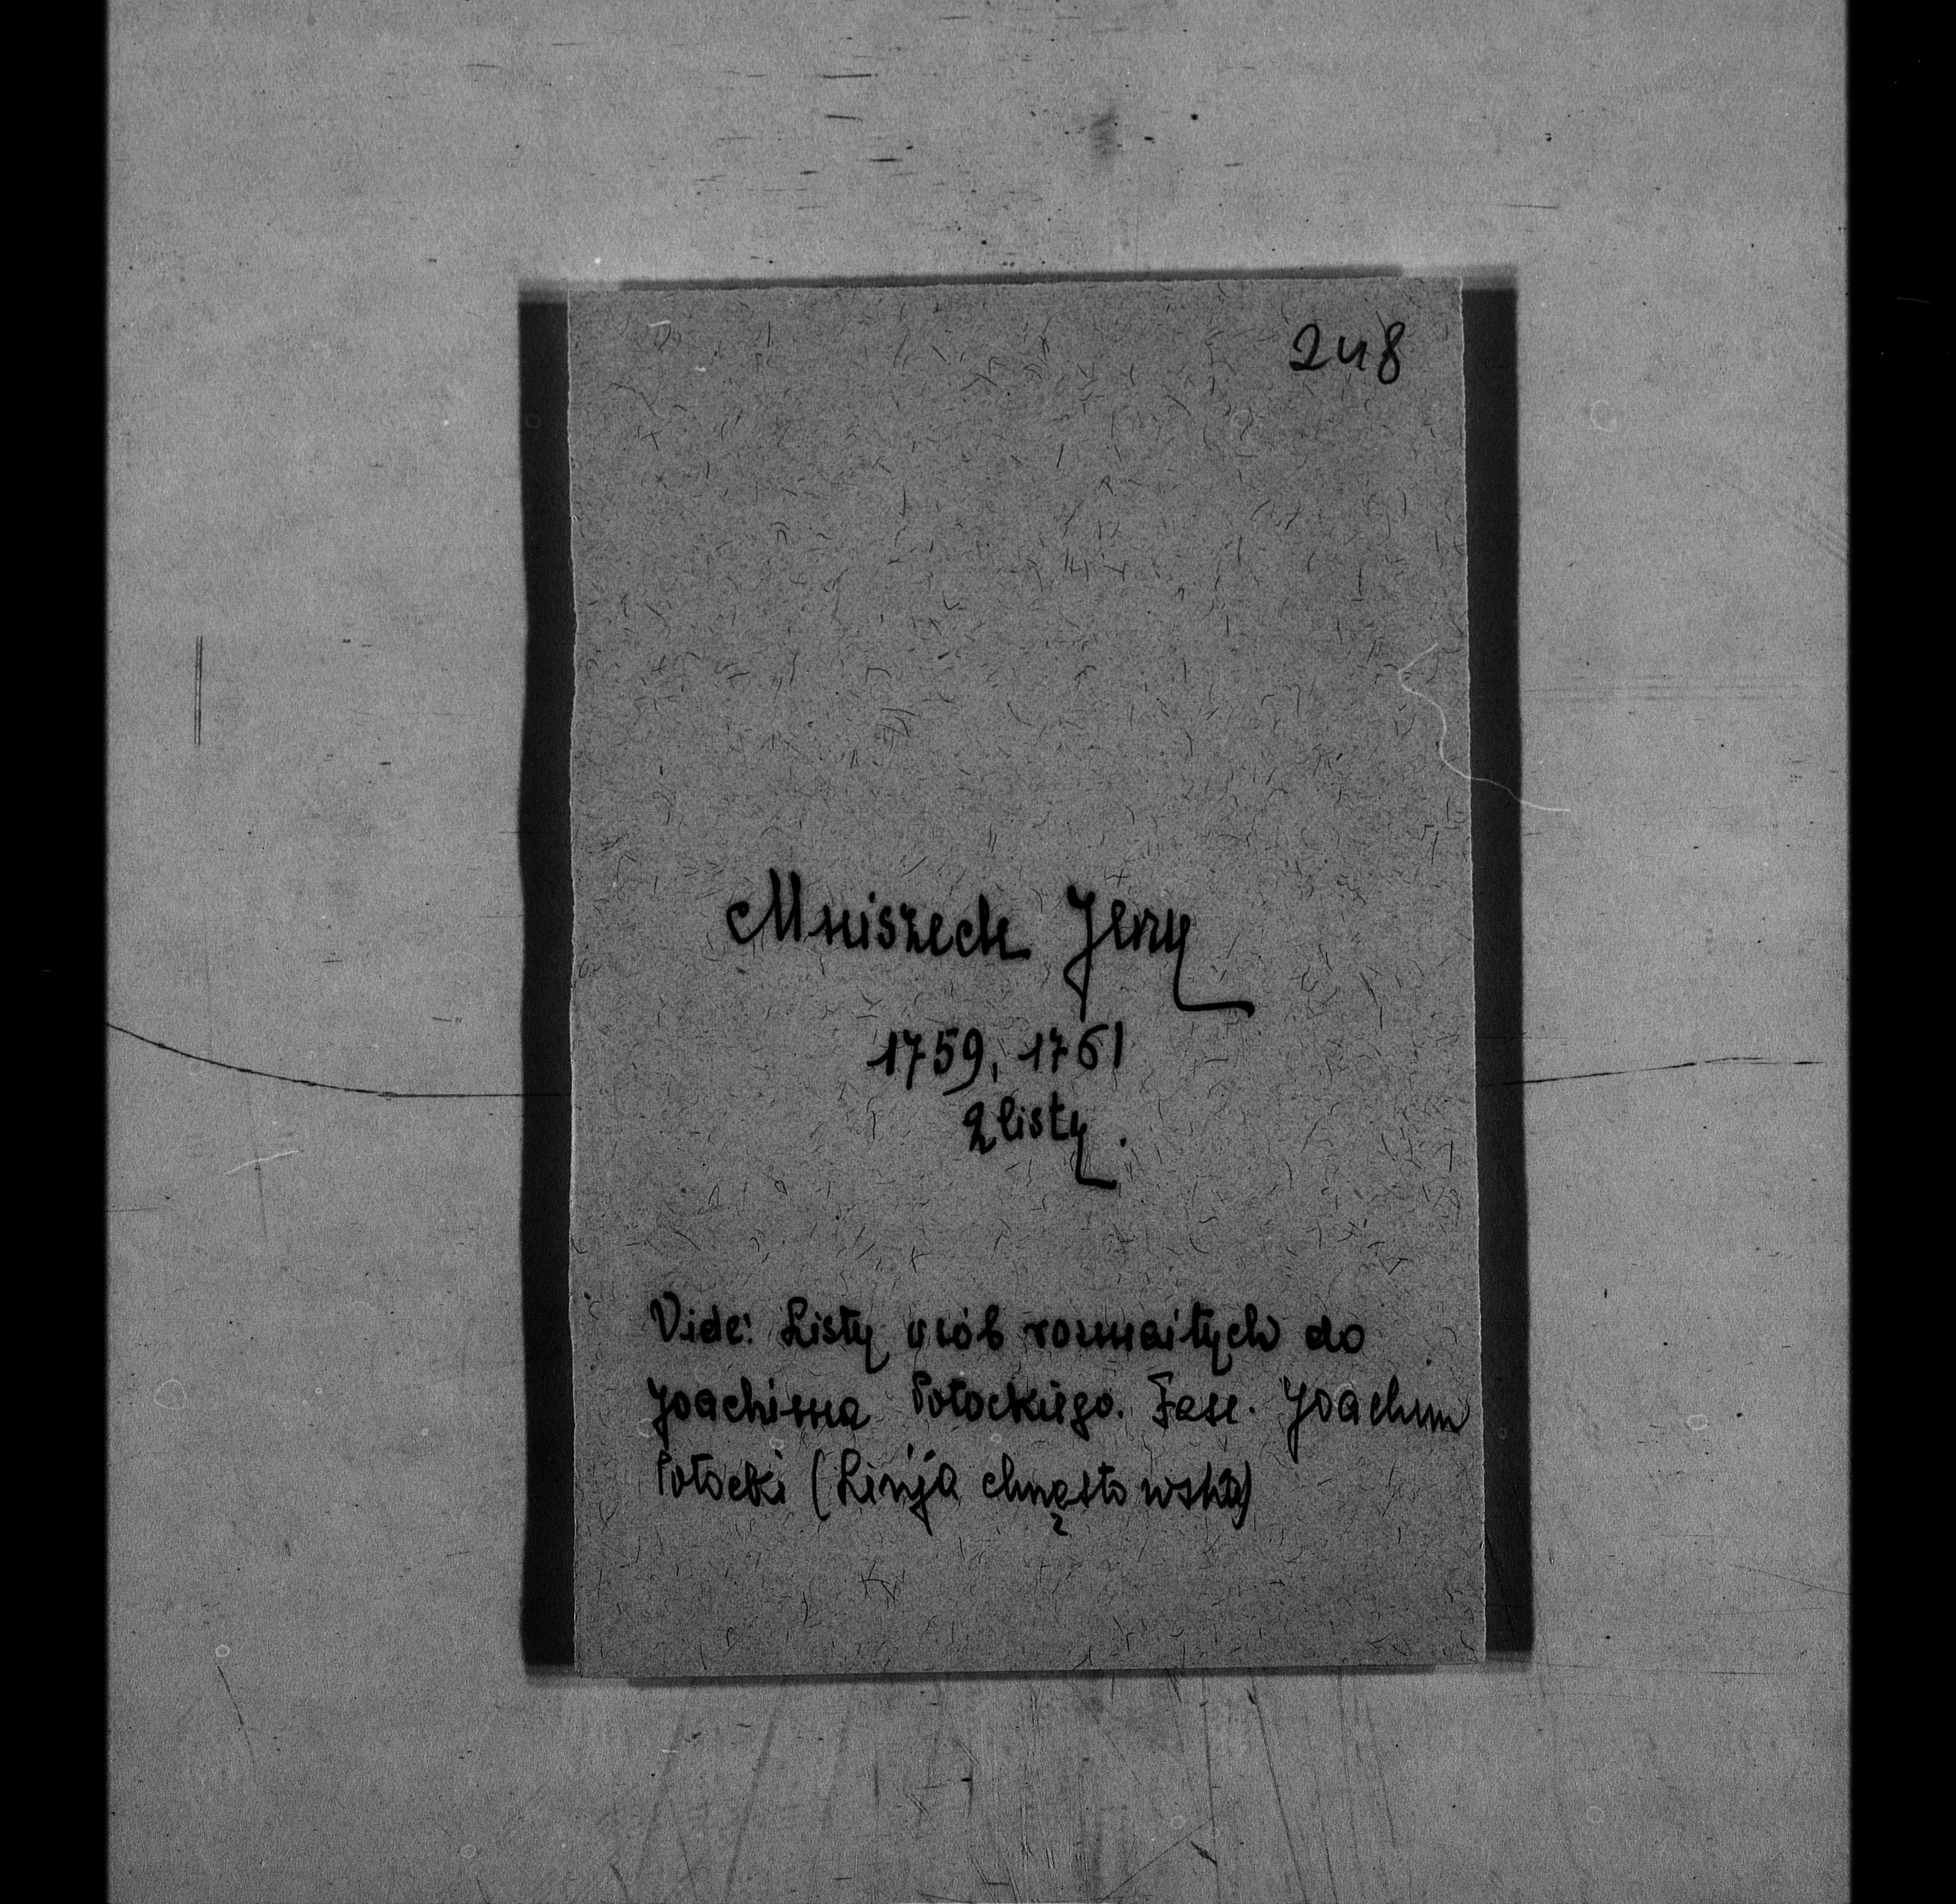 248
Mniszech Jerzy
1759, 1761
2 listy.
Vide: Listy osób rozmaitych do
Joachima Potockiego. Fasc. Joachim
Potocki (Linja chrząstowska)